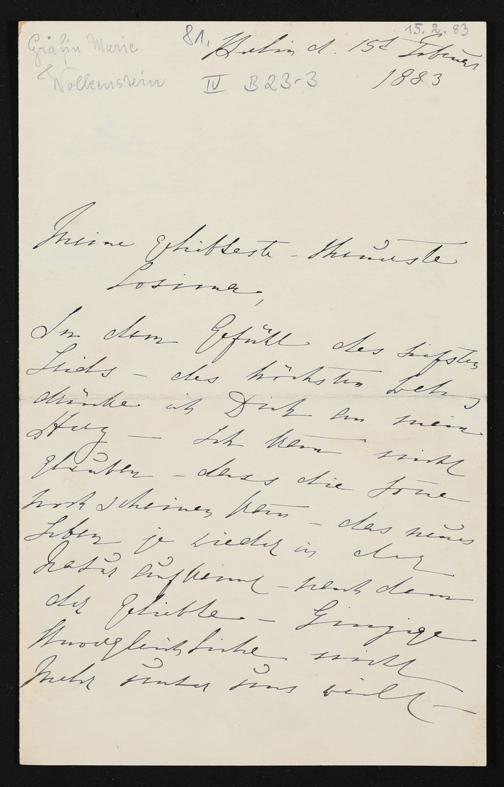 Gräfin Marie
Wolkenstein
81.
15.2.83
IV B 23-3
d. 15t Februar
1883
Meine geliebteste - theuerste
Cosima,
In dem Gefühl des tiefsten
Leids - des höchsten Wehs
drücke ich Dich an mein
Herz - Ich kann nicht
glauben - dass die Sonne
noch scheinen kann - das neues
Leben je wieder in der
Natur aufkeimt - nach dem
der Geliebte - Einzige
Unvergleichliche nicht
mehr unter uns weilt -